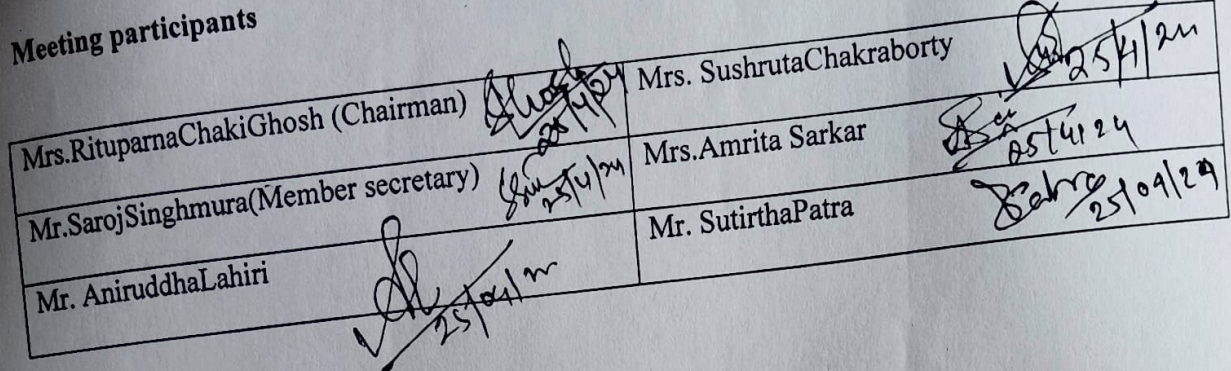 Meeting participants
Mrs.RituparnaChakiGhosh (Chairman) 25/4/24 Mrs. SushrutaChakraborty 25/4/24
Mr.SarojSinghmura(Member secretary) 25/4/24 Mrs.Amrita Sarkar 25/4/24
Mr. AniruddhaLahiri 25/04/24 Mr. SutirthaPatra 25/04/24